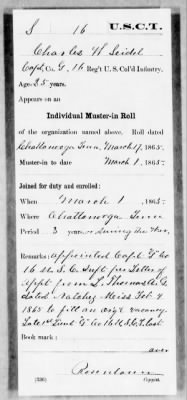 S 16 U.S.C.T.
Charles W Seidel
Capt, Co. G, 16 Reg't U. S. Col'd Infantry.
Age 25 years.
Appears on an
Individual Muster-in Roll
of the organization named above. Roll dated
Chattanooga Tenn, March 17, 1865.
Muster-in to date March 1, 1865.
Joined for duty and enrolled:
When March 1, 1865.
Where Chattanooga Tenn
Period 3 years or during the war.
Remarks: Appointed Capt G Co
16 U.S.C. Inft per Letter of
Appt from L. Thomas A.G.
dated Natchez Miss Feb 4
1865 to fill an orig vacancy
Late 1st Lieut Co 16 U.S.C. Inft
Book mark:
over
Rosenbaum
(336) Copyist.